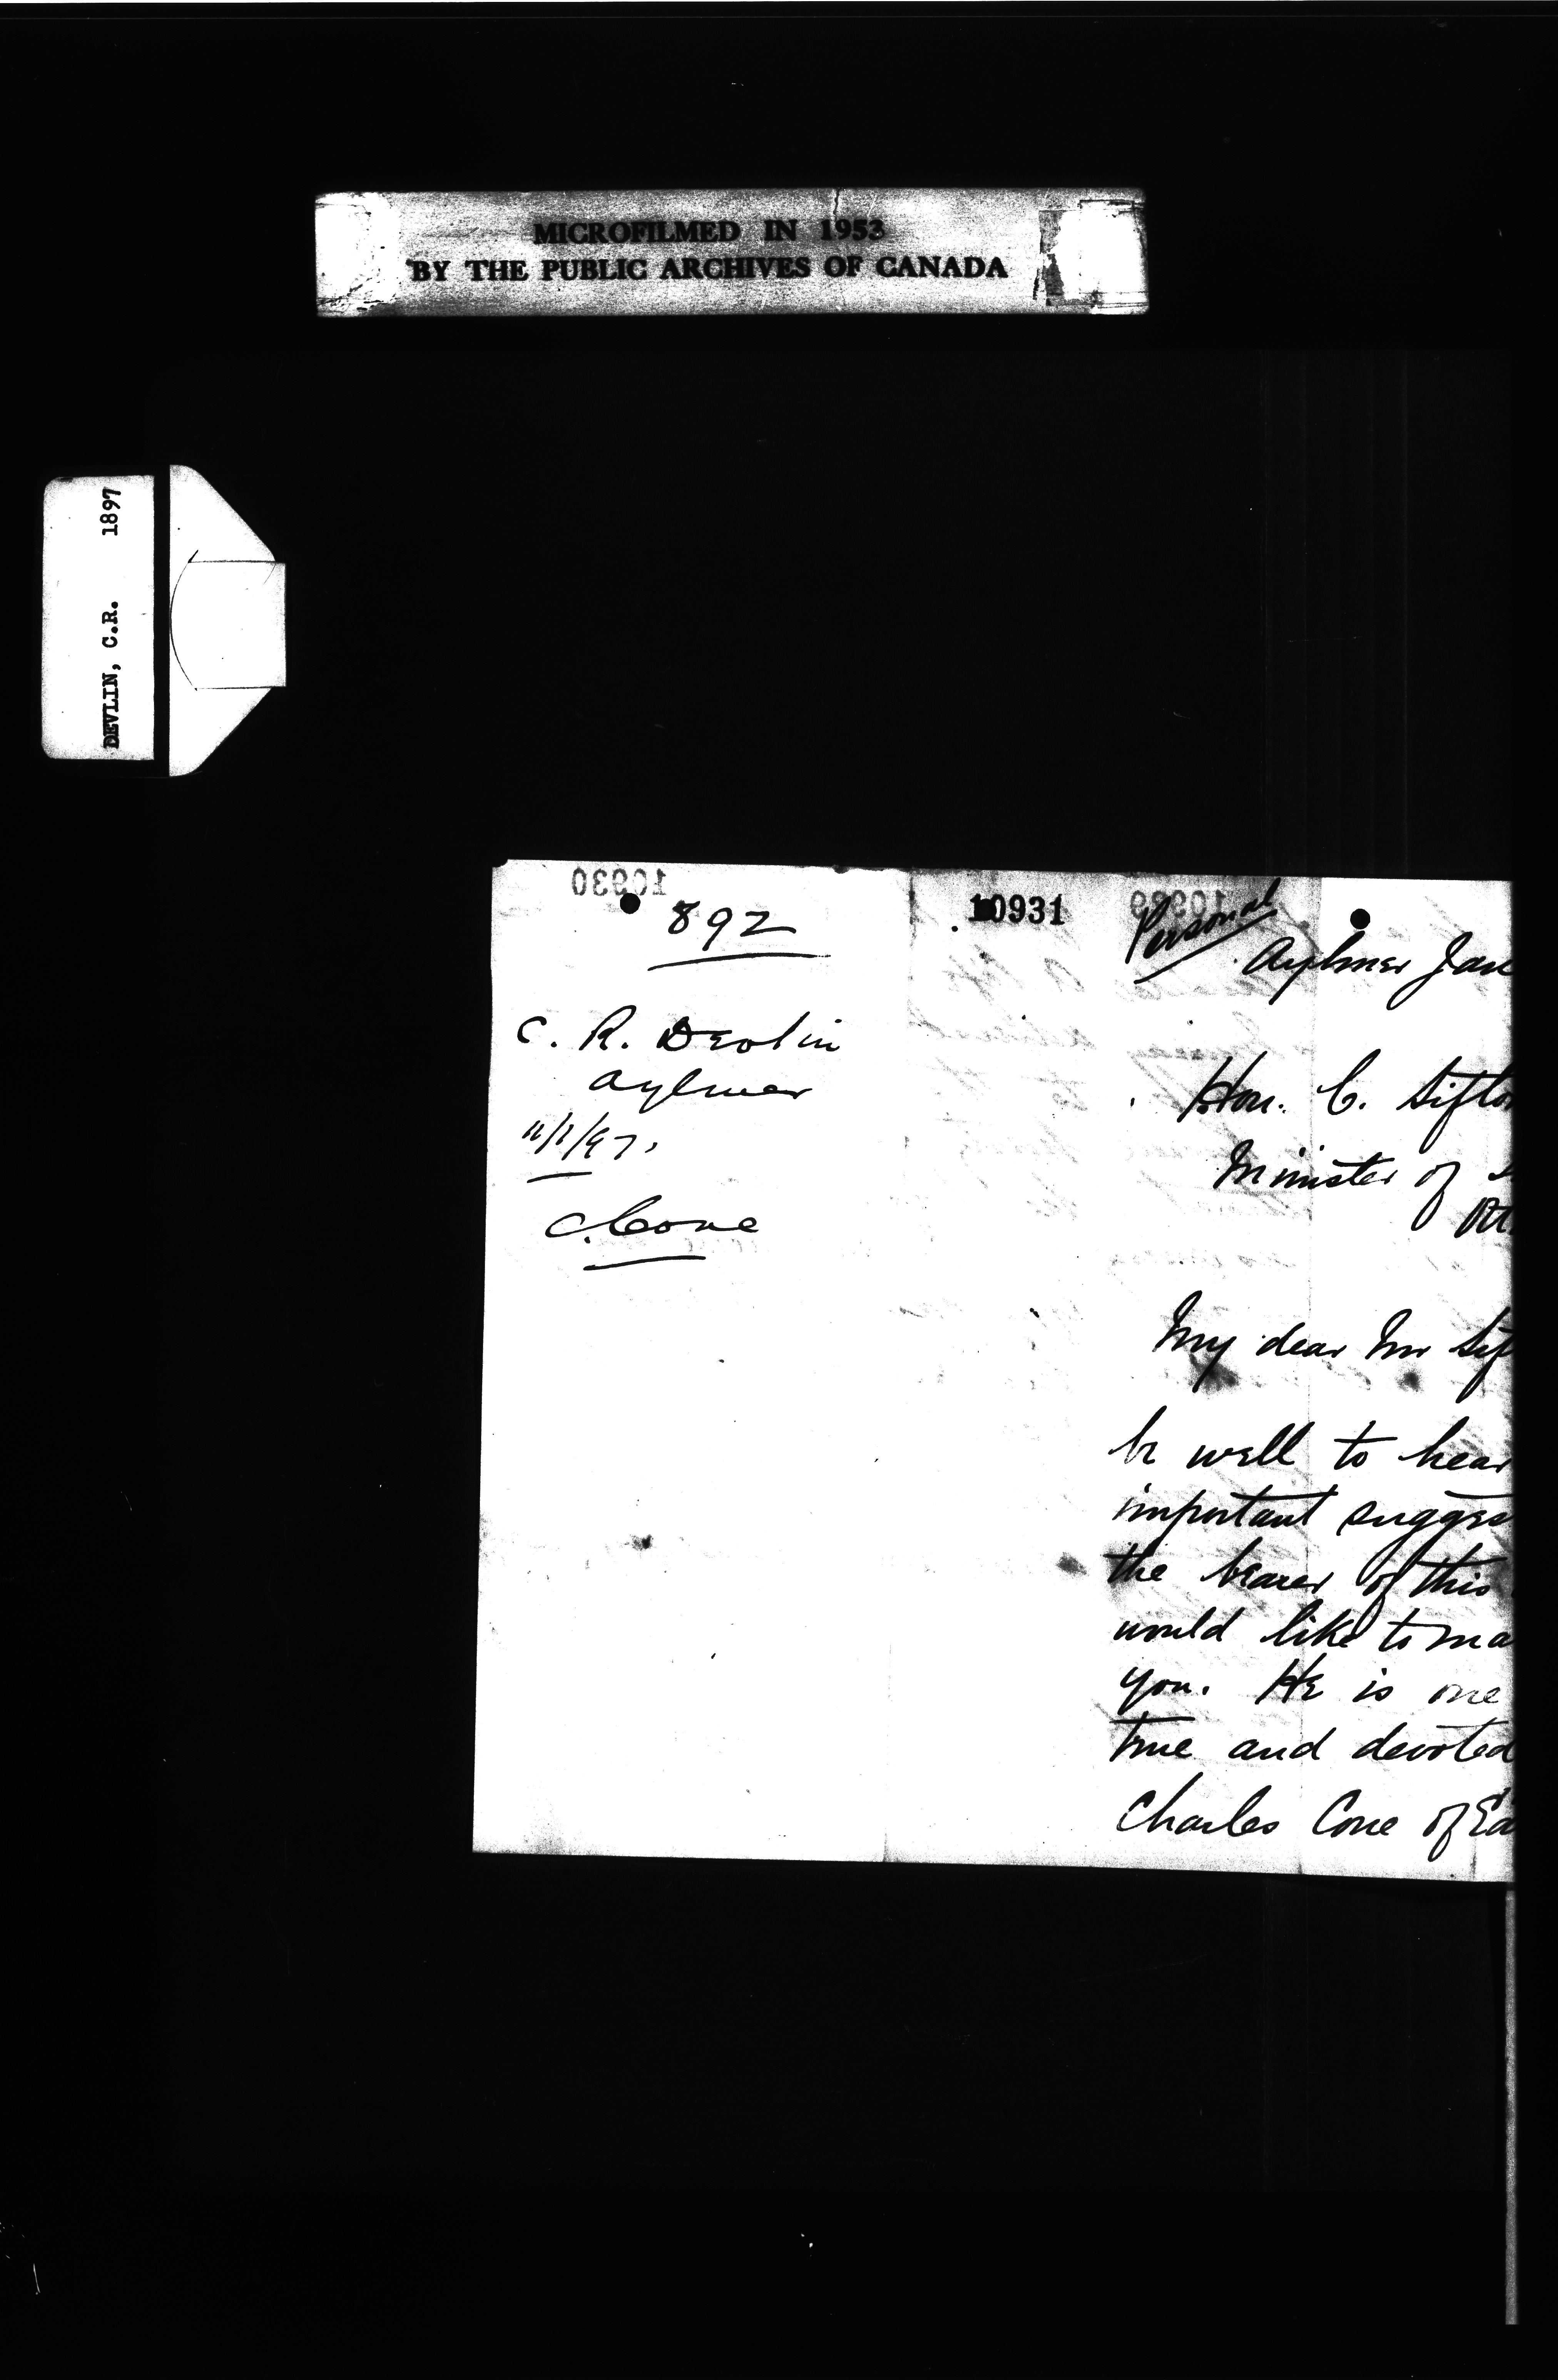 MICROFILMED IN 1953
BY THE PUBLIC ARCHIVES OF CANADA
DEVLIN, C.R. 1897
10930
892
C. R. Devlin
Aylmer
11/1/97.
C. Cone
10931
Personal
Aylmer Jan
Hon. C. Sifto
Minister of
Ott
My dear Mr Sif
be well to hear
important sugges
the bearer of this
would like to ma
you. He is one
true and devoted
Charles Cone of Ea